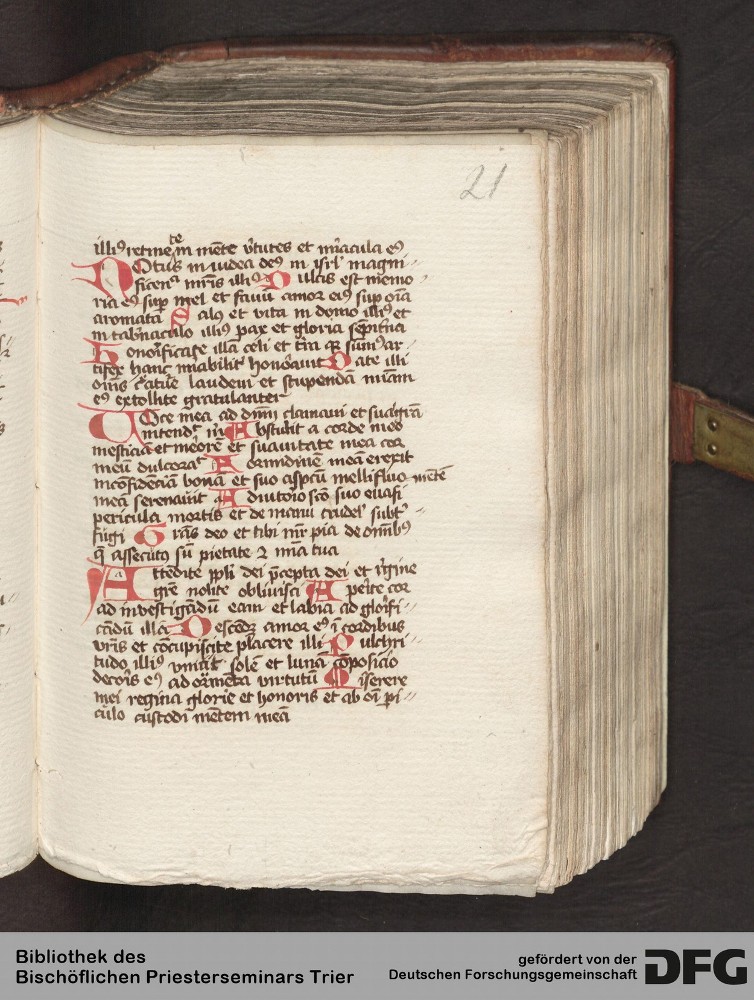 21
illiꝰ retinete in mēte v̓tutes et mīacula eꝰ
Otus in iudea deꝰ in isrl̓ magni
ficen̄ mr̄is illiꝰ Dulcis est memo
ria eꝰ sup mel et fauū amor eiꝰ sup oīa
aromata Salꝰ et vita in domo illiꝰ et
in tab̓naculo illiꝰ pax et gloria sēpit̓na
Honorificate illā celi et t̓ra
tifex hanc mīabilit̓ honōauit Date illi
oīnis c̓atūe laudem et stupendā
eꝰ extollite gratulanter
Voce mea ad dnm̄ clamaui et sua gr̄a
intend̓ m̓ Abstulit a corde meo
mesticiā et meōrē et suauitate mea cor
meū dulcorat Formidinē meā erexit
in confidenciā bonā et suo aspcū mellifluo mētē
meā serenauit Adiutoīo scō suo euasi
pericula mortis et de manu crudel̓ subt̓
fugi Grās deo et tibi mr̄ pia de omībꝰ
q̄ assecutꝰ sū pietate ⁊ mīa tua
Attēdite ppl̓i dei p̄cepta dei et v̓gine
nolite obliuisci Aperite cor
ad inuestigādū eam et labia ad glorifi
cādū illā Descēdat amor eꝰ ī cordibus
vr̄is et cōcupiscite placere illi Pulchri
tudo illiꝰ vincit solē et lunā cōposicio
decoris eꝰ ad ornmēta virtutū Miserere
mei regina glorie et honoris et ab oī pi
culo custodi mētem meā
Bibliothek des
Bischöflichen Priesterseminars Trier
gefördert von der
Deutschen Forschungsgemeinschaft
DFG